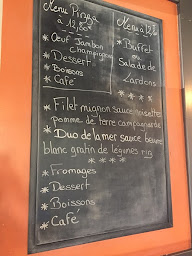 Menu Pinza
à 12,80
* Oeuf Jambon
Champignon
* Dessert
* Boissons
* Café
Menu à
* Buffet
ou
Salade de
Lardons
* Filet mignon sauce noisettes
pomme de terre campagnarde
* Duo de la mer sauce beurre
blanc gratin de légumes riz
* * * *
* Fromages
* Dessert
* Boissons
* Café